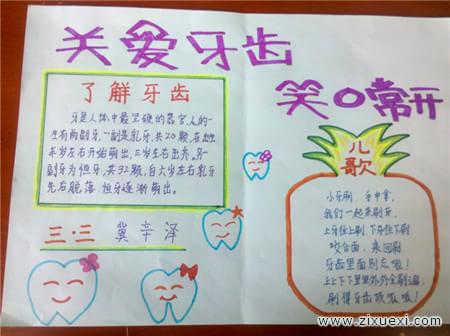 关爱牙齿
笑口常开
了解牙齿
牙是人体中最坚硬的器官,人的一
生有两副牙,一副是乳牙,共20颗,在出生
半岁左右开始萌出,三岁左右出齐。另一
副牙为恒牙,共32颗,自六岁左右乳牙
先后脱落,恒牙逐渐萌出。
三·三 冀辛泽
儿
歌
小牙刷 手中拿,
我们一起来刷牙,
上牙往上刷,下牙往下刷
咬合面,来回刷
牙齿里面别忘啦!
上上下下里里外外全刷遍,
刷得牙齿
www.zixuexi.com